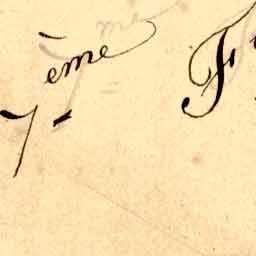 7ème F